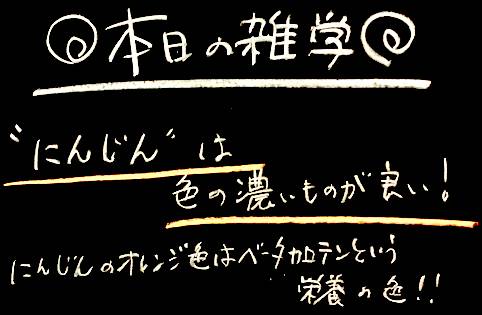 本日の雑学
"にんじん"は
色の濃いものが良い!
にんじんのオレンジ色はベータカロテンという
栄養の色!!